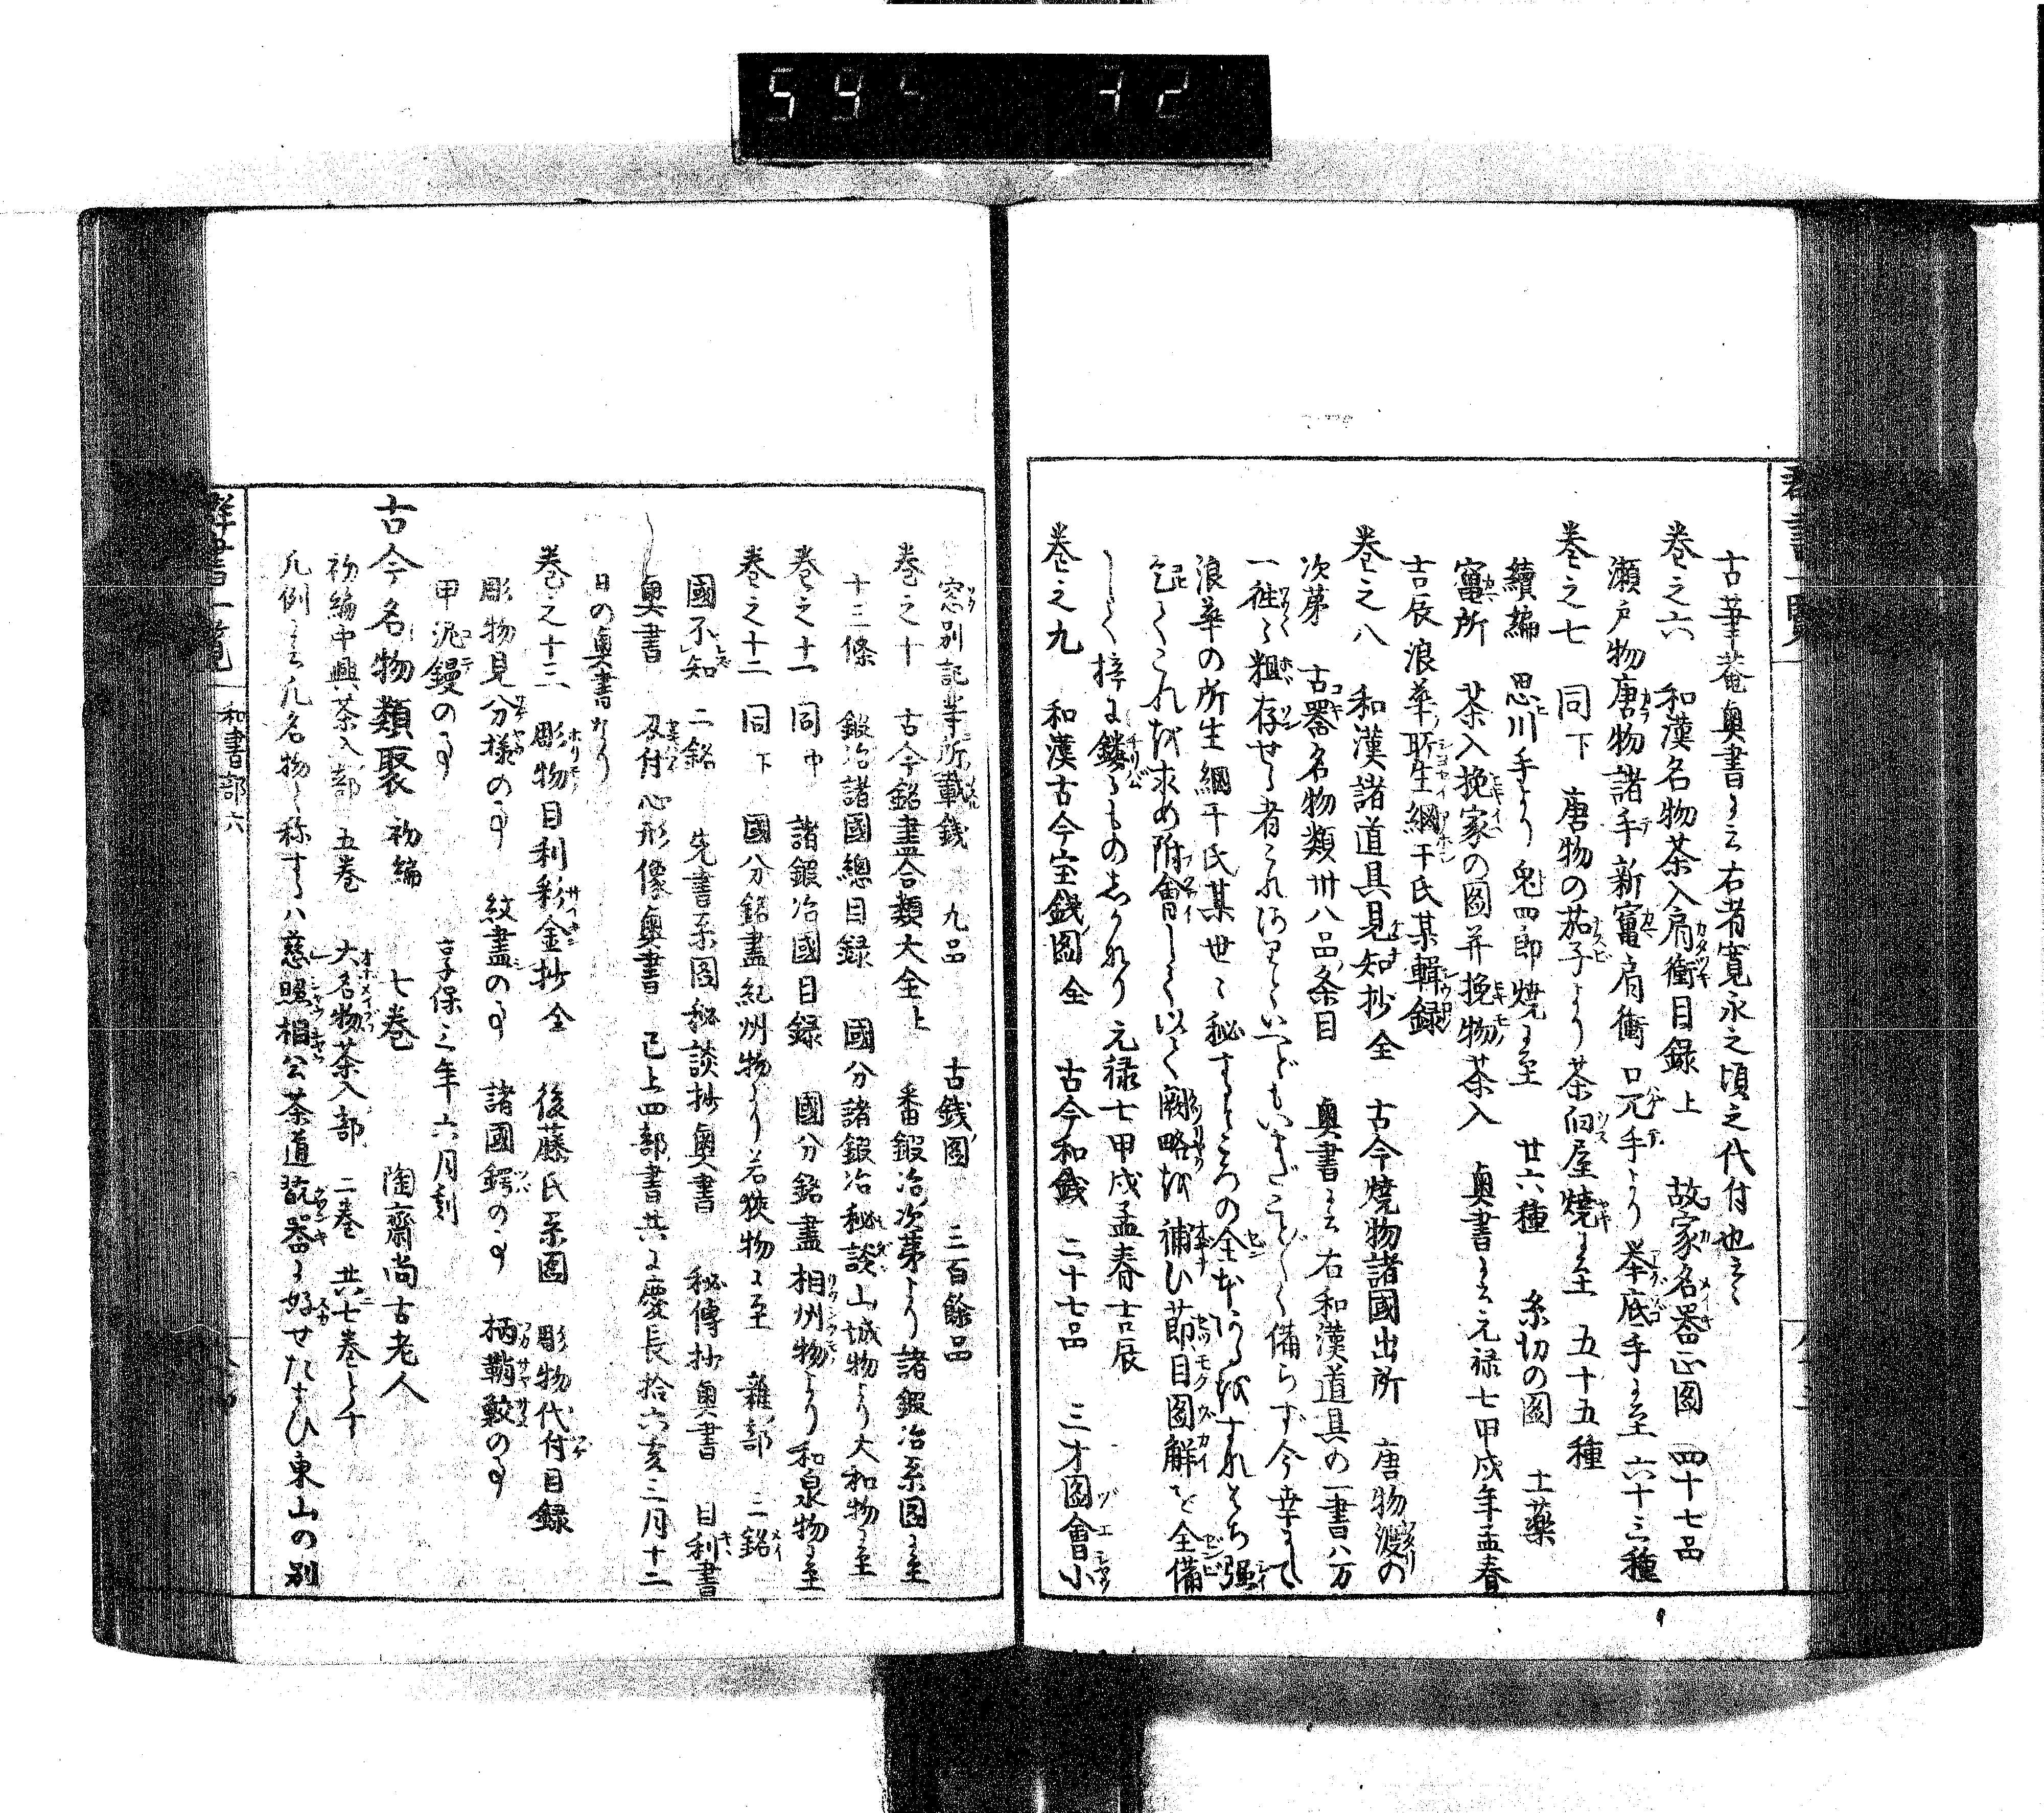 古華菴奥書ニ云右者寛永之頃之代付也云〻
巻之六　和漢名物茶入肩衝目録上　故家名器正圖　四十七品
瀬戸物唐物諸手新竈肩衝　口元手より挙底手ニ至　六十三種
巻之七　同下　唐物の茄子より茶臼屋焼ニ至　五十五種
續編　思川手より鬼四郎焼ニ至　廿六種　糸切の圖　土薬
竈所　茶入挽家の圖并挽物茶入　奥書ニ云元禄七甲戌年孟春
吉辰浪華ノ所生綱干氏某輯録
巻之八　和漢諸道具見知抄全　古今焼物諸國出所　唐物渡の
次第　古器名物類卅八品条目　奥書ニ云右和漢道具の一書八万
一徃〻粗存せる者これ有といへどもいまだこと〴〵く備らず今幸にして
浪華の所生綱干氏某世〻秘するところの全
乞てこれを求め附會して以て闕略を補ひ節目圖解を全備
して梓に鏤るものあり　元禄七甲戌孟春吉辰
巻之九　和漢古今宝銭圖全　古今和銭　二十七品　三才圖會小
窓別記等所載銭　九品　古銭圖　三百餘品
巻之十　古今銘盡合類大全上　番鍛冶次第より諸鍛冶系圖ニ至
十三條　鍛冶諸國總目録　國分諸鍛冶秘談山城物より大和物ニ至
巻之十一　同中　諸鍛冶國目録　國分銘盡相州物より和泉物ニ至
巻之十二　同下　國分銘盡紀州物より若狭物ニ至　雜部　二銘
國不知　二銘　先書系圖秘談抄奥書　秘傳抄奥書　目利書
奥書　刄付心形像奥書　已上四部書共ニ慶長拾六亥三月十二
日の奥書なり
巻之十三　彫物目利彩金抄全　後藤氏系圖　彫物代付目録
彫物見分様の事　紋盡の事　諸國鍔の事　柄鞘鮫の事
甲泥鏝の事　享保三年六月刻
古今名物類聚　初編　七巻　陶齋尚古老人
初編中興茶入部　五巻　大名物茶入部　二巻　共ニ七巻とす
凡例ニ云凡名物と称するハ慈照相公茶道翫器ニ好せたまひ東山の別
群書一覧　和書部六